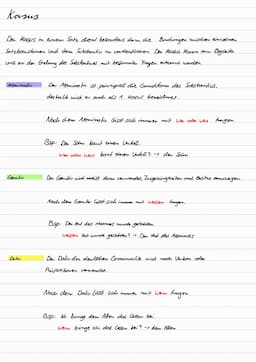 Kasus
Der Kasus in einem Satz dient besonders dazu die Bindungen zwischen einzelnen
Satzbausteinen und dem Substantiv zu verdeutlichen. Der Kasus kann am Begleiter
und an der Endung des Substantives mit bestimmten Fragen erkannt werden.
Nominativ Der Nominativ ist prinzipiell die Grundform des Substantivs,
deshalb wird er auch als 1. Kasus bezeichnet.
Nach dem Nominativ lässt sich immer mit Wer oder Was fragen
Bsp: Der Sohn baut einen Unfall.
Wer oder Was baut einen Unfall? → der Sohn
Genitiv Der Genitiv wird meist dazu verwendet, Zugehörigkeiten und Besitz anzuzeigen
Nach dem Genitiv lässt sich immer mit Wessen fragen.
Bsp: Der Hut des Mannes wurde gestohlen
Wessen Hut wurde gestohlen? → Der Hut des Mannes
Dativ Der Dativ der deutschen Grammatik wird nach Verben oder
Präpositionen verwendet.
Nach dem Dativ lässt sich immer mit Wem fragen
Bsp: Ich bringe dem Alten das Essen bei.
Wem bringe ich das Essen bei? → dem Alten